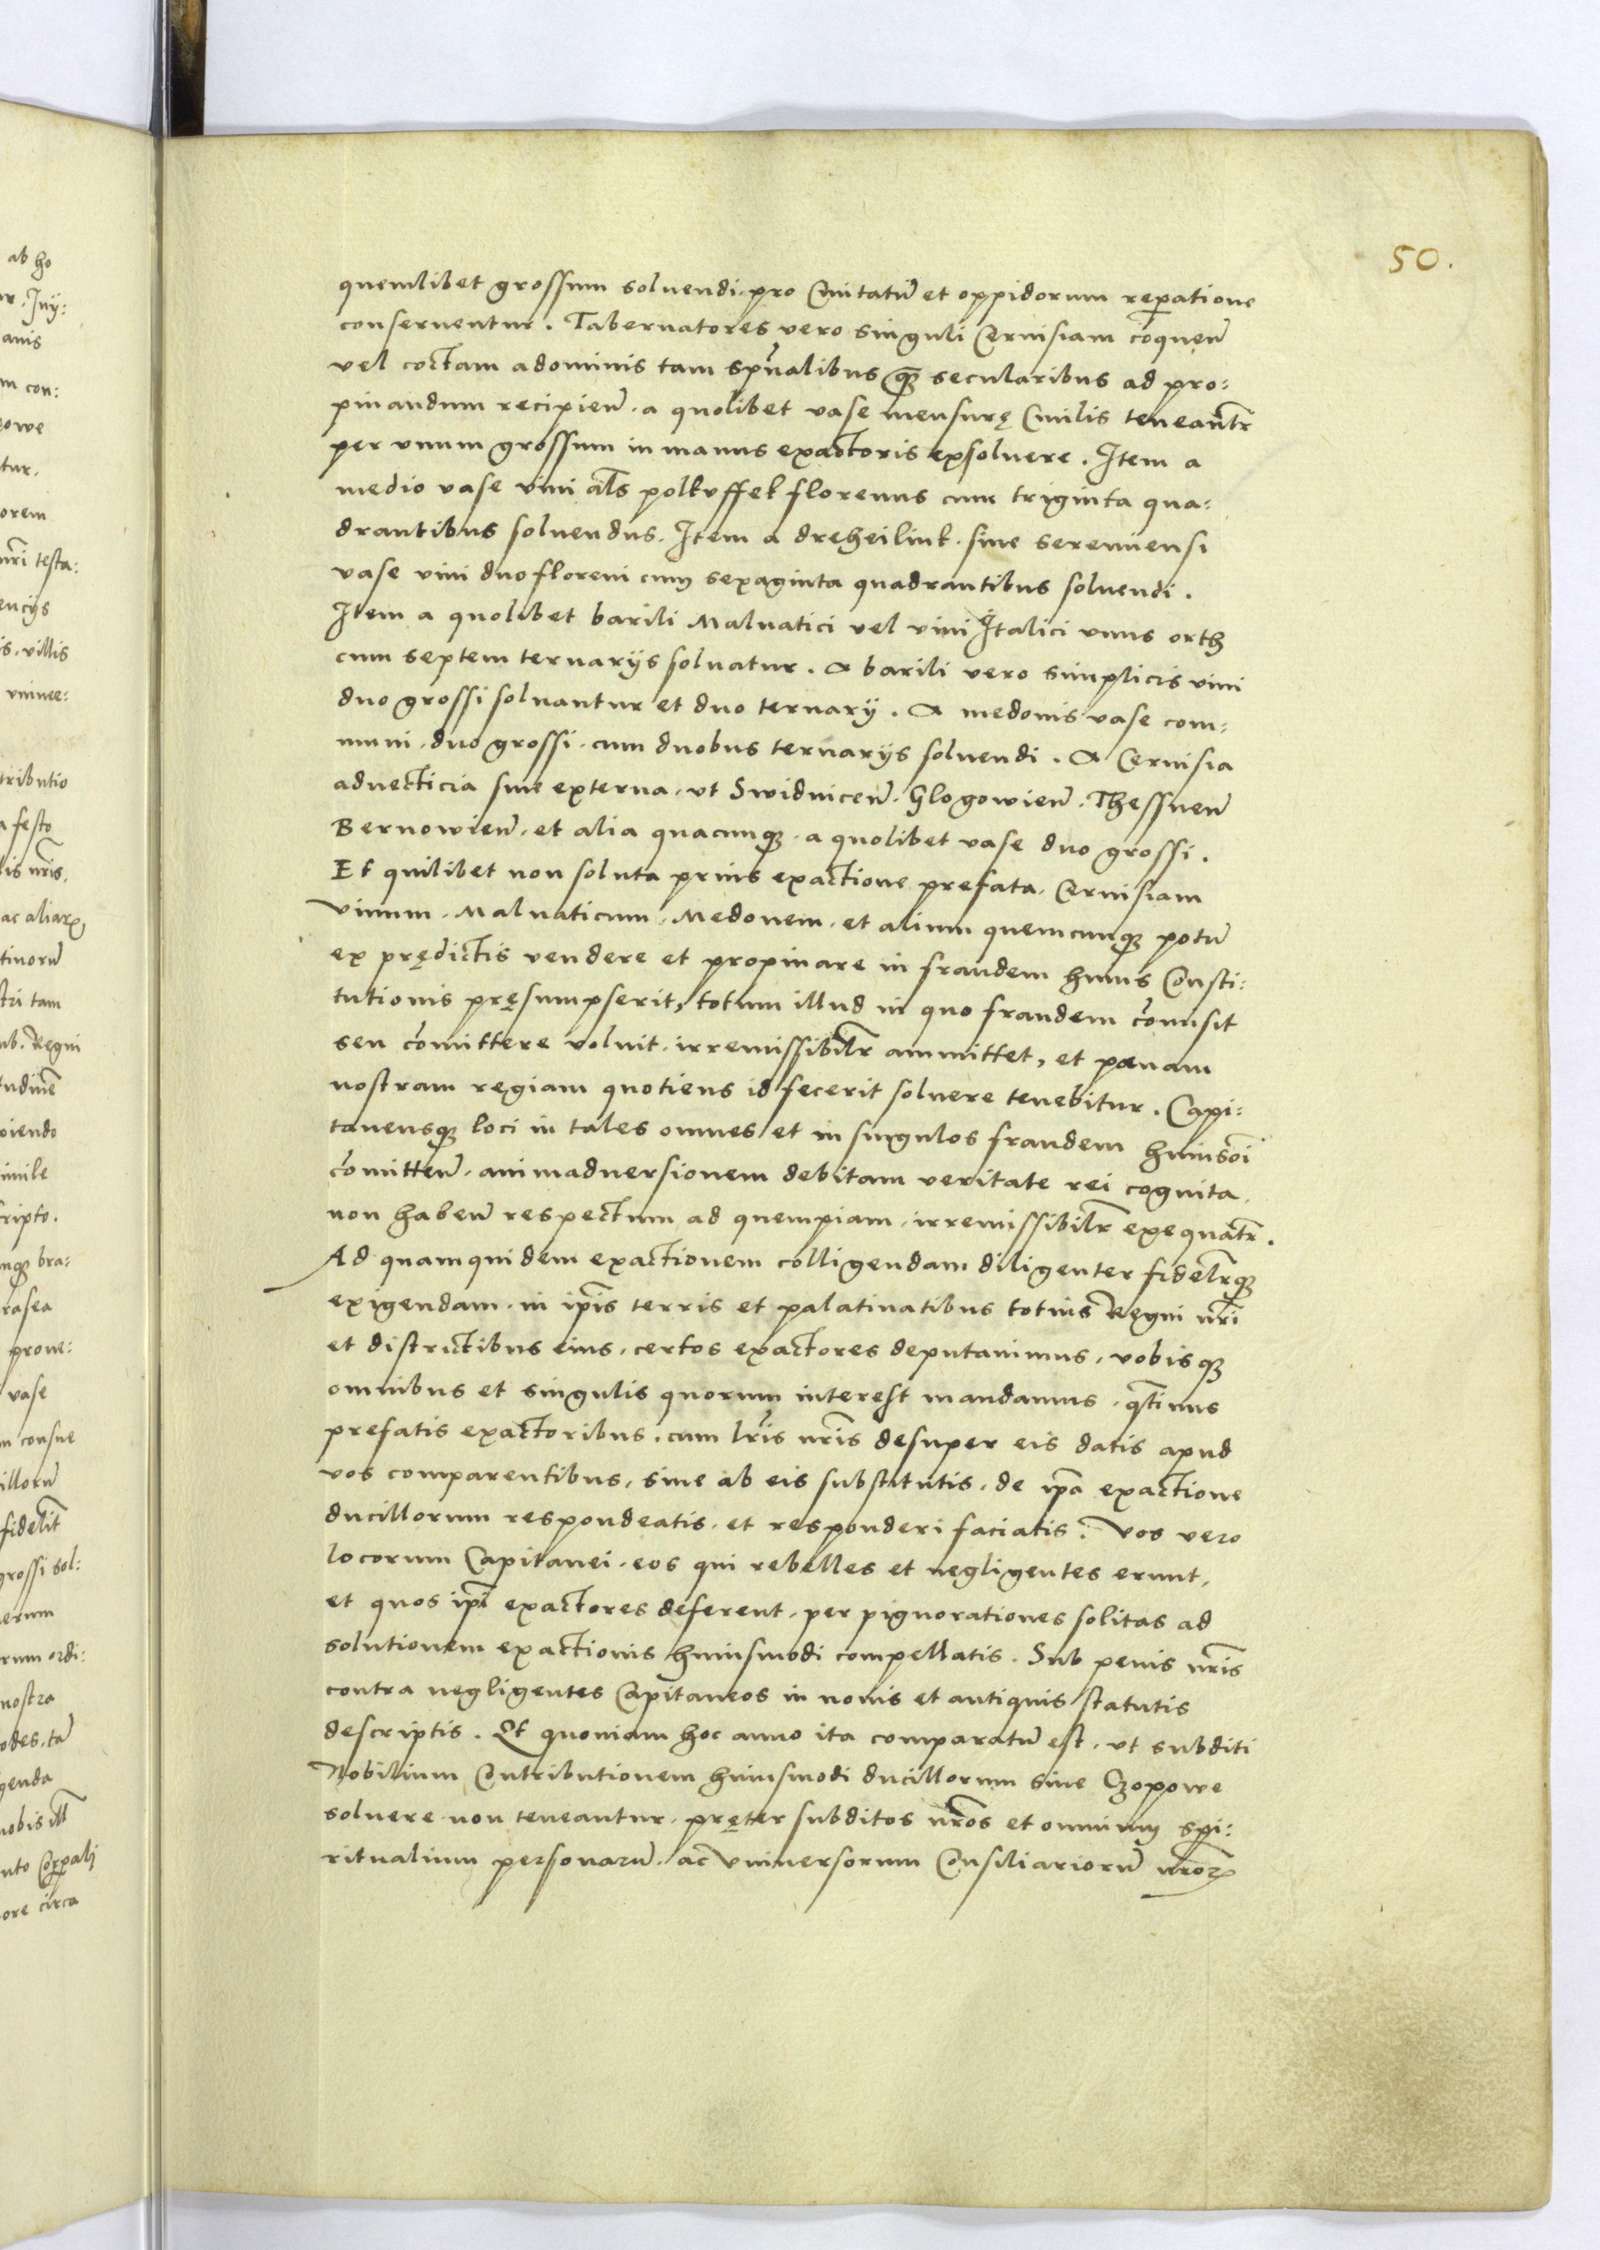 50.
quemlibet grossum soluendi. pro Ciuitatũ et oppidorum reparatione
conseruentur. Tabernatores vero singuli Ceruisiam coqueñ
vel coctam a dominis tam spũalibus quam secularibus ad pro:
pinandum recipieñ. a quolibet vase mensurę Ciuilis teneantr
per vnum grossum in manus exactoris exsoluere. Item a
medio vase vini als polkuffek florenus cum triginta qua:
drantibus soluendus. Item a dreheilink. siue sereniensi
vase vini duo floreni cum sexaginta quadrantibus soluendi.
Item a quolibet barili Maluatici vel vini Italici vnus orth
cum septem ternarijs soluatur. A barili vero simplicis vini
duo grossi soluantur et duo ternarij. A medonis vase com:
muni. duo grossi. cum duobus ternarijs soluendi. A Ceruisia
aduecticia siue externa. vt Swidniceñ. Glogowieñ. Thessneñ
Bernowieñ. et alia quacunqȝ. a quolibet vase duo grossi.
Et quilibet non soluta prius exactione prefata. Ceruisiam
vinum. Maluaticum. Medonem. et alium quemcunqȝ potũ
ex prędictis vendere et propinare in fraudem huius Consti:
tutionis pręsumpserit, totum illud in quo fraudem cõmisit
seu cõmittere voluit. irremissibilr ammittet, et pœnam
nostram regiam quotiens id fecerit soluere tenebitur. Capi:
taneusqȝ loci in tales omnes et in singulos fraudem huiusõi
cõmitteñ. animaduersionem debitam veritate rei cognita.
non habeñ respectum ad quempiam. irremissibilr exequatr.
Ad quam quidem exactionem colligendam diligenter fidelrqȝ
exigendam. in ipis terris et palatinatibus totius Regni nri
et districtibus eius. certos exactores deputauimus. vobisqȝ
omnibus et singulis quorum interest mandamus. qtinus
prefatis exactoribus. cum lris nris desuper eis datis apud
vos comparentibus, siue ab eis substitutis. de ipa exactione
ducillorum respondeatis. et responderi faciatis. Vos vero
locorum Capitanei. eos qui rebelles et negligentes erunt,
et quos ipi exactores deferent. per pignorationes solitas ad
solutionem exactionis huiusmodi compellatis. Sub penis nris
contra negligentes Capitaneos in nouis et antiquis statutis
descriptis. Et quoniam hoc anno ita comparatũ est. vt subditi
Nobilium Contributionem huiusmodi ducillorum siue Czopowe
soluere non teneantur. pręter subditos nros et omnium spi:
ritualium personarũ. ac Vniuersorum Consiliariorũ nrorꝝ